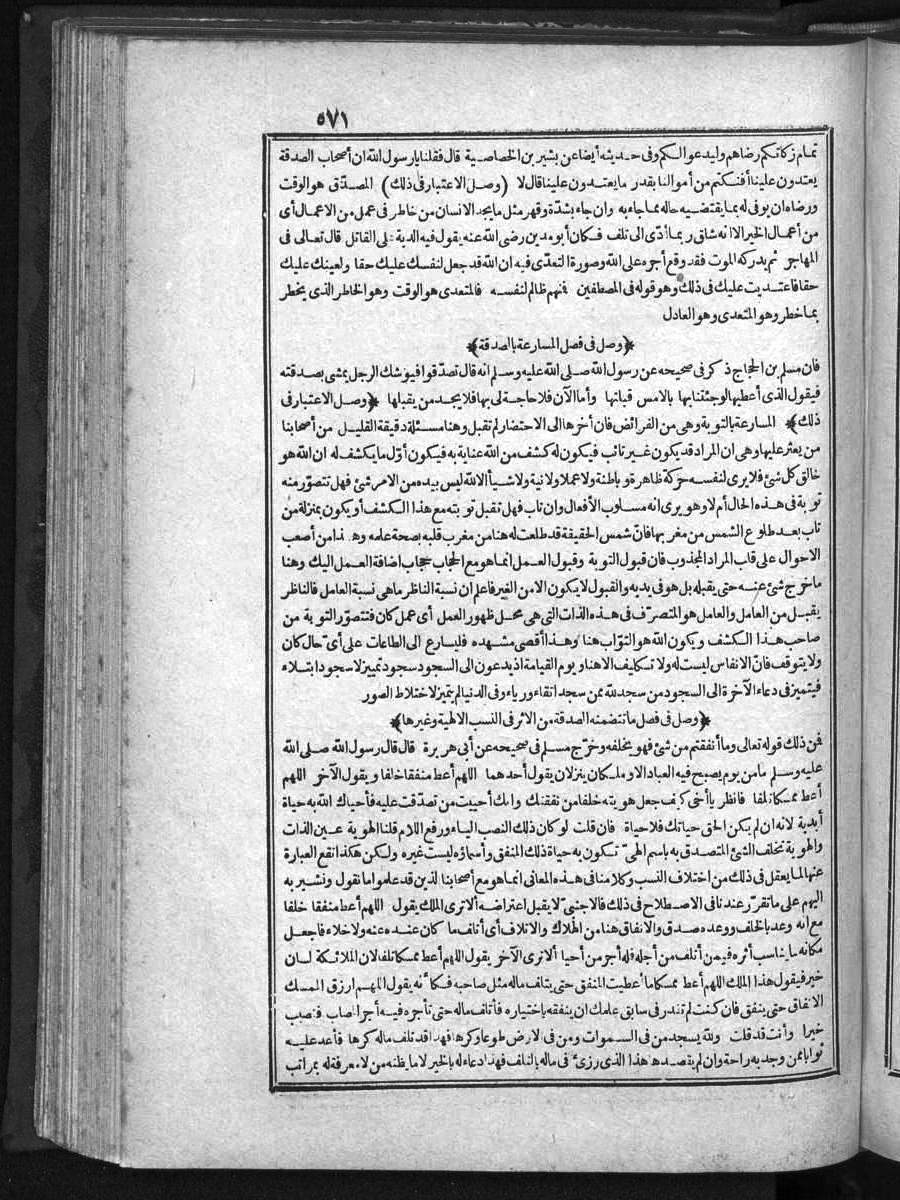 ٥٧١
تمام زكاتكم رضاهم وليدعوا لكم وفى حديثه أيضا عن بشير بن الخصاصية قال فقلنا يا رسول الله ان أصحاب الصدقة
يعتدون علينا أفنكتم من أموالنا بقدر ما يعتدون علينا قال لا (وصل الاعتبار فى ذلك) المصدّق هو الوقت
ورضاه ان يوفى له بما يقتضيه حاله مما جاء به وان جاء بشدّة وقهر مثل ما يجد الانسان من خاطر فى عمل من الاعمال أى
من أعمال الخير الا انه شاق ربما أدّى الى تلف فكان أبو مدين رضى الله عنه يقول فيه الدية على القاتل قال تعالى فى
المهاجر ثم يدركه الموت فقد وقع أجره على الله وصورة التعدّى فيه ان الله قد جعل لنفسك عليك حقا ولعينك عليك
حقا فاعتديت عليك فى ذلك وهو قوله فى المصطفين فمنهم ظالم لنفسه فالمتعدى هو الوقت وهو الخاطر الذى يخطر
بما خطر وهو المتعدى وهو العادل
﴿وصل فى فصل المسارعة بالصدقة﴾
فان مسلم بن الحجاج ذكر فى صحيحه عن رسول الله صلى الله عليه وسلم انه قال تصدّقوا فيوشك الرجل يمشى بصدقته
فيقول الذى أعطيها لو جئتنا بها بالامس قبلتها وأما الآن فلا حاجة لى بها فلا يجد من يقبلها ﴿وصل الاعتبار فى
ذلك﴾ المسارعة بالتوبة وهى من الفرائض فان أخرها الى الاحتضار لم تقبل وهنا مسئلة دقيقة القليل من أصحابنا
من يعثر عليها وهى ان المراد قد يكون غير تائب فيكون له كشف من الله عناية به فيكون أوّل ما يكشف له ان الله هو
خالق كل شئ فلا يرى لنفسه حركة ظاهرة وباطنة ولا عملا ولا نية ولا شيأ الا الله ليس بيده من الامر شئ فهل تتصوّر منه
توبة فى هذه الحال أم لا وهو يرى انه مسلوب الأفعال وان تاب فهل تقبل توبته مع هذا الكشف أو يكون بمنزلة من
تاب بعد طلوع الشمس من مغربها فانّ شمس الحقيقة قد طلعت له هنا من مغرب قلبه بصحة علمه وهذا من أصعب
الاحوال على قلب المراد المجذوب فان قبول التوبة وقبول العمل انما هو مع الحجاب حجاب اضافة العمل اليك وهنا
ما خرج شئ عنه حتى يقبله بل هو فى يديه والقبول لا يكون الا من الغير فاعلم ان نسبة الناظر ما هى نسبة العامل فالناظر
يقبل من العامل والعامل هو المتصرّف فى هذه الذات التى هى محل ظهور العمل أى عمل كان فتتصوّر التوبة من
صاحب هذا الكشف ويكون الله هو التوّاب هنا وهذا أقصى مشهده فليسارع الى الطاعات على أىّ حال كان
ولا يتوقف فانّ الانفاس ليست له ولا تكليف الا هنا ويوم القيامة اذ يدعون الى السجود سجود تمييز لا سجود ابتلاء
فيتميز فى دعاء الآخرة الى السجود من سجد لله ممن سجد اتقاء ورياء وفى الدنيا لم يتميز لاختلاط الصور
﴿وصل فى فصل ما تتضمنه الصدقة من الاثر فى النسب الالهية وغيرها﴾
فمن ذلك قوله تعالى وما أنفقتم من شئ فهو يخلفه وخرّج مسلم فى صحيحه عن أبى هريرة قال قال رسول الله صلى الله
عليه وسلم ما من يوم يصبح فيه العباد الا وملكان ينزلان يقول أحدهما اللهم أعط منفقا خلفا ويقول الآخر اللهم
أعط ممسكا تلفا فانظر يا أخى كيف جعل هويته خلفا من نفقتك وانك أحييت من تصدّقت عليه فأحياك الله به حياة
أبدية لانه ان لم يكن الحق حياتك فلا حياة فان قلت لو كان ذلك النصب الياء ورفع اللام قلنا الهوية عين الذات
والهوية تخلف الشئ المتصدق به باسم الهىّ تكون به حياة ذلك المنفق وأسماؤه ليست غيره ولكن هكذا تقع العبارة
عنها لما يعقل فى ذلك من اختلاف النسب وكلامنا فى هذه المعانى انما هو مع أصحابنا الذين قد علموا ما نقول ونشير به
اليهم على ما تقرّر عندنا فى الاصطلاح فى ذلك فالاجنبىّ لا يقبل اعتراضه ألا ترى الملك يقول اللهم أعط منفقا خلفا
مع انه وعد بالخلف ووعده صدق والانفاق هنا من الهلاك والاتلاف أى أتلف ما كان عنده عنه ولا خلاء فاجعل
مكانه ما يناسب أثره فيمن أتلف من أجله فله أجر من أحيا ألا ترى الآخر يقول اللهم أعط ممسكا تلفا لان الملائكة لسان
خير فيقول هذا الملك اللهم أعط ممسكا ما أعطيت المنفق حتى يتلف ماله مثل صاحبه فكأنه يقول اللهم ارزق الممسك
الانفاق حتى ينفق فان كنت لم تقدر فى سابق علمك ان ينفقه باختياره فأتلف ماله حتى تأجره فيه أجر المصاب فتصب
خيرا وأنت قد قلت ولله يسجد من فى السموات ومن فى الارض طوعا وكرها فهذا قد تلف ماله كرها فأعد عليه
ثوابا ممن وجد به راحة وان لم يقصده هذا الذى رزئ فى ماله بالتلف فهذا دعاء له بالخير لا ما يظنه من لا معرفة له بمراتب